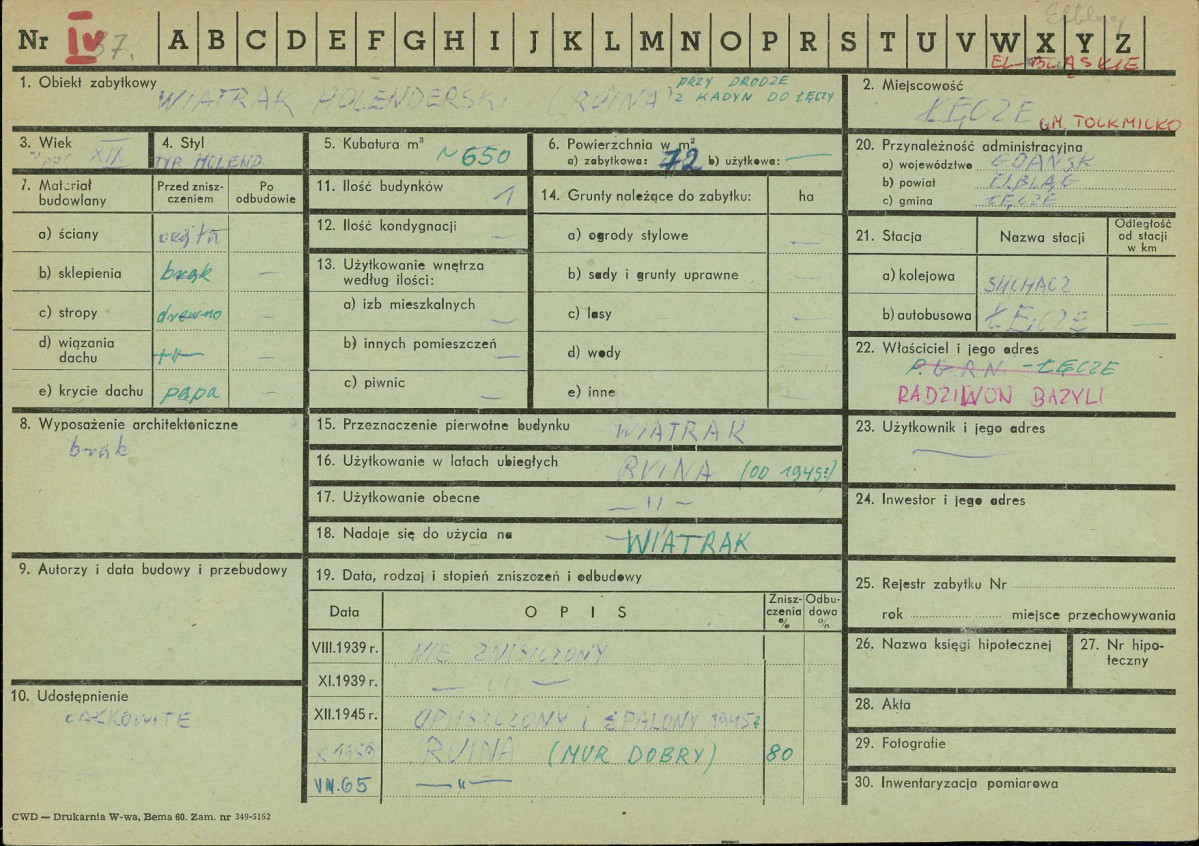 Elbląg
Nr IV 37. A B C D E F G H I J K L M N O P R S T U V W X Y Z
ELBLĄSKIE
1. Obiekt zabytkowy
WIATRAK HOLENDERSKI (RUINA) PRZY DRODZE
Z KADYN DO ŁĘCZY
2. Miejscowość
ŁĘCZE GM. TOLKMICKO
3. Wiek
XIX
4. Styl
TYP HOLEND.
5. Kubatura m³ ~650
6. Powierzchnia w m²
a) zabytkowa: 72 b) użytkowa: —
20. Przynależność administracyjna
a) województwo GDAŃSK
b) powiat ELBLĄG
c) gmina ŁĘCZE
7. Materiał budowlany
Przed zniszczeniem
Po odbudowie
a) ściany cegła
b) sklepienia brak —
c) stropy drewno —
d) wiązania dachu —"— —
e) krycie dachu papa —
11. Ilość budynków 1
12. Ilość kondygnacji —
13. Użytkowanie wnętrza według ilości:
a) izb mieszkalnych —
b) innych pomieszczeń —
c) piwnic —
14. Grunty należące do zabytku: ha
a) ogrody stylowe —
b) sady i grunty uprawne
c) lasy —
d) wody —
e) inne
21. Stacja
Nazwa stacji
Odległość od stacji w km
a) kolejowa SUCHACZ
b) autobusowa ŁĘCZE —
22. Właściciel i jego adres
P.G.R.N. - ŁĘCZE
RADZIWON BAZYLI
8. Wyposażenie architektoniczne
brak
15. Przeznaczenie pierwotne budynku WIATRAK
16. Użytkowanie w latach ubiegłych RUINA (OD 1945r)
17. Użytkowanie obecne —"—
18. Nadaje się do użycia na WIATRAK
23. Użytkownik i jego adres
—
24. Inwestor i jego adres
9. Autorzy i data budowy i przebudowy
19. Data, rodzaj i stopień zniszczeń i odbudowy
Data
OPIS
Zniszczenia %
Odbudowa %
VIII.1939 r. NIE ZNISZCZONY
XI.1939 r. —"—
XII.1945 r. OPUSZCZONY I SPALONY 1945r
X 1959 RUINA (MUR DOBRY) 80
VII.65 —"—
25. Rejestr zabytku Nr
rok miejsce przechowywania
26. Nazwa księgi hipotecznej
27. Nr hipoteczny
10. Udostępnienie
CAŁKOWITE
28. Akta
29. Fotografie
30. Inwentaryzacja pomiarowa
CWD — Drukarnia W-wa, Bema 60. Zam. nr 349-5162